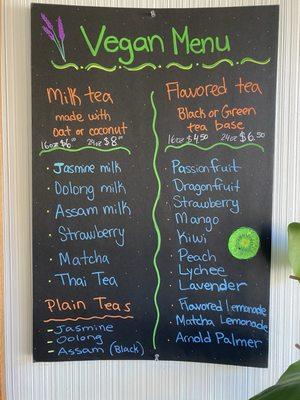 Vegan Menu
Milk tea
made with
oat or coconut
16oz $6.00 24oz $8.00
• Jasmine milk
• Oolong milk
• Assam milk
• Strawberry
• Matcha
• Thai Tea
Plain Teas
- Jasmine
- Oolong
- Assam (Black)
Flavored tea
Black or Green
tea base
16oz $4.50 24oz $6.50
• Passionfruit
• Dragonfruit
• Strawberry
• Mango
• Kiwi
• Peach
• Lychee
• Lavender
• Flavored Lemonade
• Matcha Lemonade
• Arnold Palmer